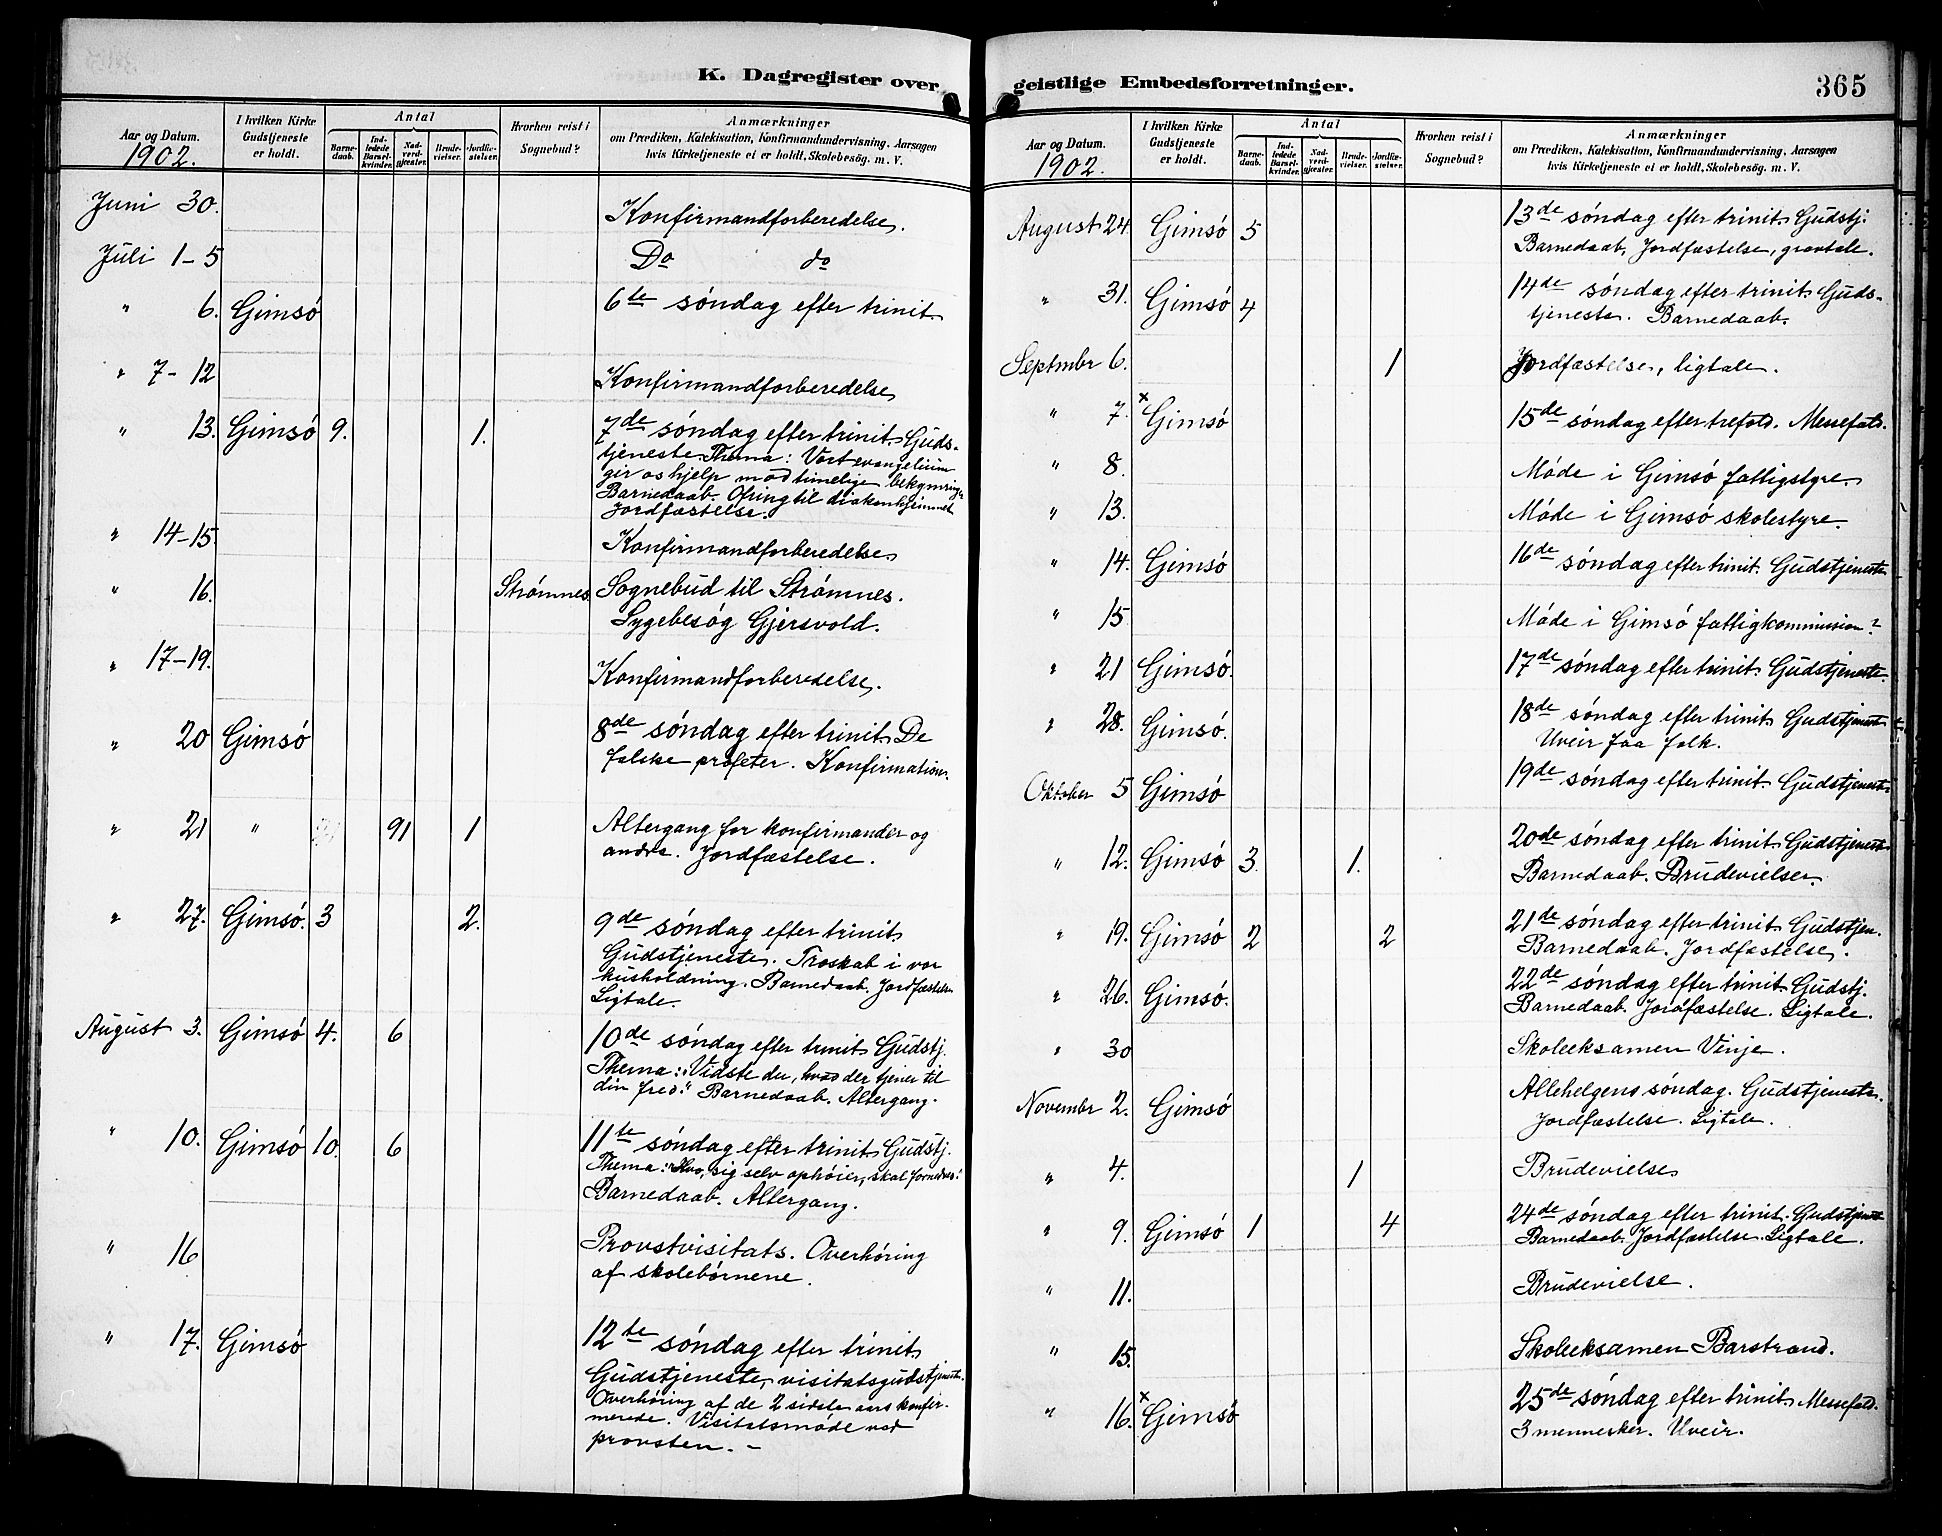 K. Dagregister over
Aar og Datum.
1902.
I hvilken Kirke Gudstjeneste er holdt.
Antal
Barne-daab.
Ind-ledede Barsel-kvinder.
Nad-verd-gjæster.
Brude-vielser.
Jordfæ-stelser.
Hvorhen reist i Sognebud?
Anmærkninger
om Prædiken, Katekisation, Konfirmandundervisning, Aarsagen
hvis Kirketjeneste ei er holdt, Skolebesög. m. V.
Juni 30. Konfirmandforberedelse.
Juli 1-5 Do do
" 6. Gimsó 6te sóndag efter trinit.
" 7-12 Konfirmandforberedelse
" 13. Gimsó 9. 1. 7de sóndag efter trinit. Guds-
tjeneste. Thema: Vort evangelium
gir os hjelp mod timelige bekymring.
Barnedaab. Ofring til diakonhjemmet
Jordfæstelse.
" 14-15. Konfirmandforberedelse
" 16. Strómnes Sognebud til Strómnes.
Sygebesóg Gjersvold.
" 17-19. Konfirmandforberedelse.
" 20 Gimsó 8de sóndag efter trinit. De
falske profeter. Konfirmation.
" 21 " 91 1 Altergang for konfirmander og
andre. Jordfæstelse.
" 27. Gimsó. 3 2. 9de sóndag efter trinit.
Gudstjeneste. Troskab i vor
husholdning. Barnedaab. Jordfæstelse
Ligtale.
August 3. Gimsó 4. 6 10de sóndag efter trinit. Gudstj.
Thema: "Vidste du, hvad der tjener til
din fred." Barnedaab. Altergang.
" 10. Gimsó 10. 6 11te sóndag efter trinit. Gudstj.
Thema: "Hvo, sig selv ophóier, skal fornedres."
Barnedaab. Altergang.
" 16 Provstvisitats. Overhóring
af skolebórnene.
" 17. Gimsó 12te sóndag efter trinit.
Gudstjeneste, visitatsgudstjeneste.
Overhóring af de 2 sidste aars konfir-
merede. Visitatsmóde ved
provsten. –
geistlige Embedsforretninger.
365
Aar og Datum.
1902.
I hvilken Kirke Gudstjeneste er holdt.
Antal
Barne-daab.
Ind-ledede Barsel-kvinder.
Nad-verd-gjæster.
Brude-vielser.
Jordfæ-stelser.
Hvorhen reist i Sognebud?
Anmærkninger
om Prædiken, Katekisation, Konfirmandundervisning, Aarsagen
hvis Kirketjeneste ei er holdt, Skolebesög. m. V.
August 24. Gimsó 5 13de sóndag efter trinit. Gudstj.
Barnedaab, Jordfæstelse, gravtale.
" 31. Gimsó 4 14de sóndag efter trinit. Guds-
tjeneste. Barnedaab.
Septmbr 6. 1 Jordfæstelse, ligtale.
" 7. x Gimsó 15de sóndag efter trefold. Messefald.
" 8. Móde i Gimsó fattigstyre.
" 13. Móde i Gimsó skolestyre.
" 14. Gimsó 16de sóndag efter trinit. Gudstjeneste
" 15 Móde i Gimsó fattigkommission?
" 21 Gimsó. 17de sóndag efter trinit. Gudstjeneste.
" 28. Gimsó. 18de sóndag efter trinit. Gudstjenest
Uveir faa folk.
Oktober 5 Gimsó 19de sóndag efter trinit. Gudstjenest
" 12. Gimsó 3. 1. 20de sóndag efter trinit. Gudstjenest
Barnedaab. Brudevielser.
" 19. Gimsó 2 2 21de sóndag efter trinit. Gudstjen.
Barnedaab. Jordfæstelse.
" 26. Gimsó. 22de sóndag efter trinit. Gudstj.
Barnedaab. Jordfæstelse. Ligtale.
" 30 Skoleeksamen Vinje.
Novembr 2. Gimsó Allehelgens sóndag. Gudstjeneste.
Jordfæstelse. Ligtale.
" 4. 1 Brudevielse
" 9. Gimsó 1 4 24de sóndag efter trinit. Gudstjenest
Barnedaab. Jordfæstelse. Ligtale.
" 11. Brudevielse.
" 15. Skoleeksamen Barstrand.
" 16. x Gimsó 25de sóndag efter trinit. Messefald.
3 mennesker. Uveir.